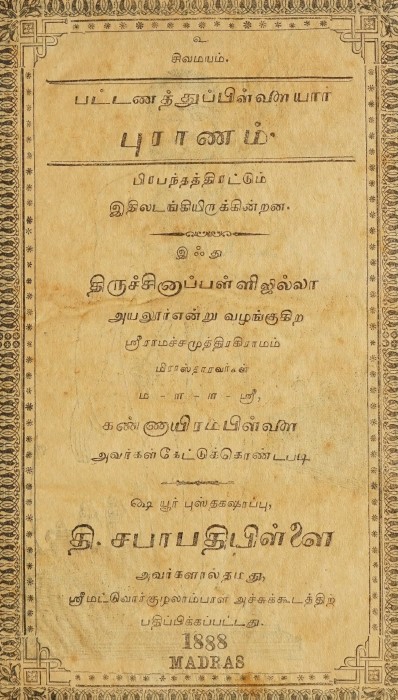 உ
சிவமயம்.
பட்டணத்துப்பிள்ளையார்
புராணம்.
பிரபந்தத்திரட்டும்
இதிலடங்கியிருக்கின்றன.
இஃது
திருச்சினாப்பள்ளிஜில்லா
அயலூர்என்று வழங்குகிற
ஸ்ரீராமச்சமுத்திரகிராமம்
மிராஸ்தாரவர்கள்
ம-௱-௱-ஸ்ரீ,
கண்ணாயிரம்பிள்ளை
அவர்கள்கேட்டுக்கொண்டபடி
௸ யூர் புஸ்தகஷாப்பு,
தி. சபாபதிபிள்ளை
அவர்களால் தமது,
ஸ்ரீமட்வொர்குழலாம்பாள் அச்சுக்கூடத்திற்
பதிப்பிக்கப்பட்டது.
1888
MADRAS